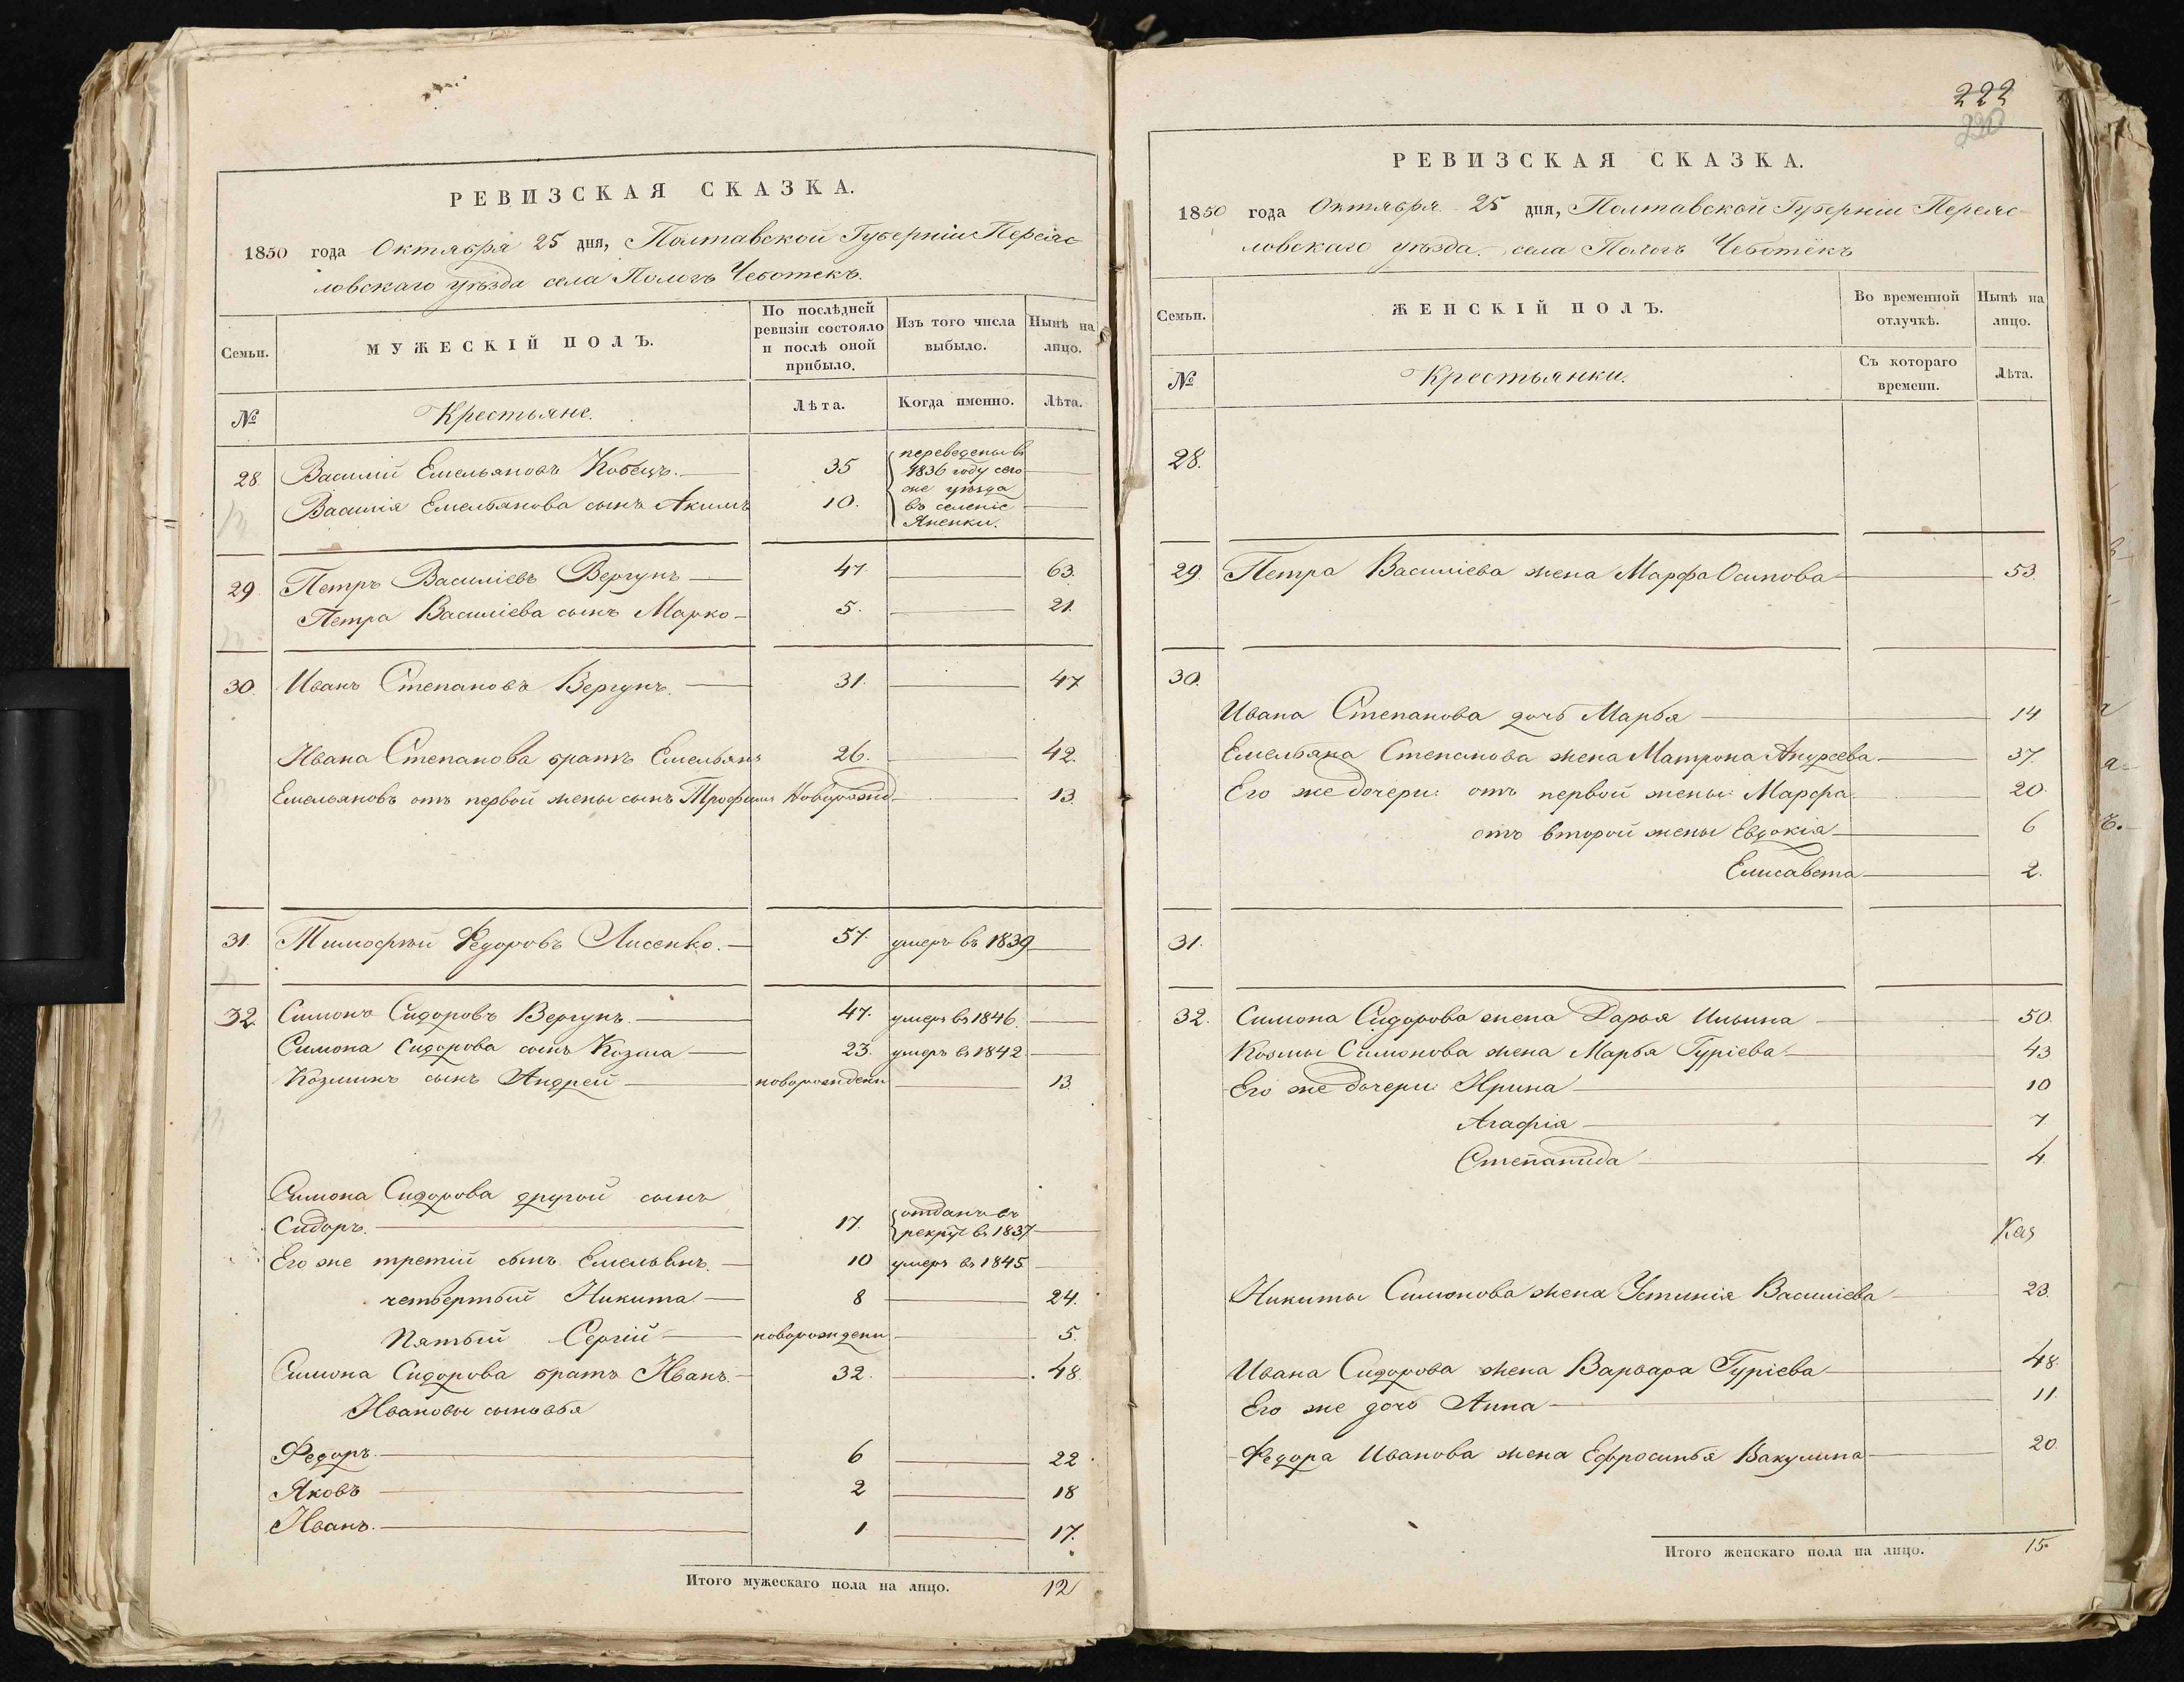 РЕВИЗСКАЯ СКАЗКА.
1850 года Октября 25 дня, Полтавской Губерніи Переяс-
ловскаго уѣзда села Пологъ Чеботекъ.
Семьи.
МУЖЕСКІЙ ПОЛЪ.
По послѣдней ревизіи состояло и послѣ оной прибыло.
Изъ того числа выбыло.
Нынѣ на лицо.
№
Крестьяне.
Лѣта.
Когда именно.
Лѣта.
28 Василій Емельяновъ Кобецъ. 35 переведены въ
1836 году сего
же уѣзда
Василія Емельянова сынъ Акимъ 10. въ селеніе
Яненки.
29 Петръ Василіевъ Вергунъ 47 63.
Петра Василіева сынъ Марко 5. 21.
30. Иванъ Степановъ Вергунъ. 31. 47
Ивана Степанова братъ Емельянъ 26. 42.
Емельяновъ отъ первой жены сынъ Трофимъ Новорожд. 13.
31. Тимофѣй Федоровъ Лисенко. 57. умеръ въ 1839
32. Симонъ Сидоровъ Вергунъ. 47. умеръ въ 1846.
Симона Сидорова сынъ Козма 23. умеръ въ 1842
Козминъ сынъ Андрей новорожденн 13.
Симона Сидорова другой сынъ
Сидоръ. 17. отданъ въ
рекрут въ 1837
Его же третій сынъ Емельянъ. 10 умеръ въ 1845
четвертый Никита 8 24.
Пятый Сергій новорожденн 5.
Симона Сидорова братъ Иванъ. 32. 48.
Ивановы сыновья
Федоръ. 6 22
Яковъ 2 18
Иванъ. 1 17.
Итого мужескаго пола на лицо. 12
222
220
РЕВИЗСКАЯ СКАЗКА.
1850 года Октября 25 дня, Полтавской Губерніи Переяс-
ловскаго уѣзда, села Пологъ Чеботекъ
Семьи.
ЖЕНСКІЙ ПОЛЪ.
Во временной отлучкѣ.
Нынѣ на лицо.
№
Крестьянки.
Съ котораго времени.
Лѣта.
28.
29. Петра Василіева жена Марфа Осипова 53.
30.
Ивана Степанова дочь Марья 14
Емельяна Степанова жена Матрона Андреева 37.
Его же дочери: отъ первой жены Марфа 20.
отъ второй жены Евдокія 6
Елисавета 2.
31.
32. Симона Сидорова жена Дарья Ильина 50.
Козмы Симонова жена Марья Гуріева 43
Его же дочери: Ирина 10
Агафія 7
Степанида 4.
Каз
Никиты Симонова жена Устинія Василіева 23.
Ивана Сидорова жена Варвара Гуріева 48.
Его же дочь Анна 11.
Федора Иванова жена Ефросинья Вакулина 20.
Итого женскаго пола на лицо. 15